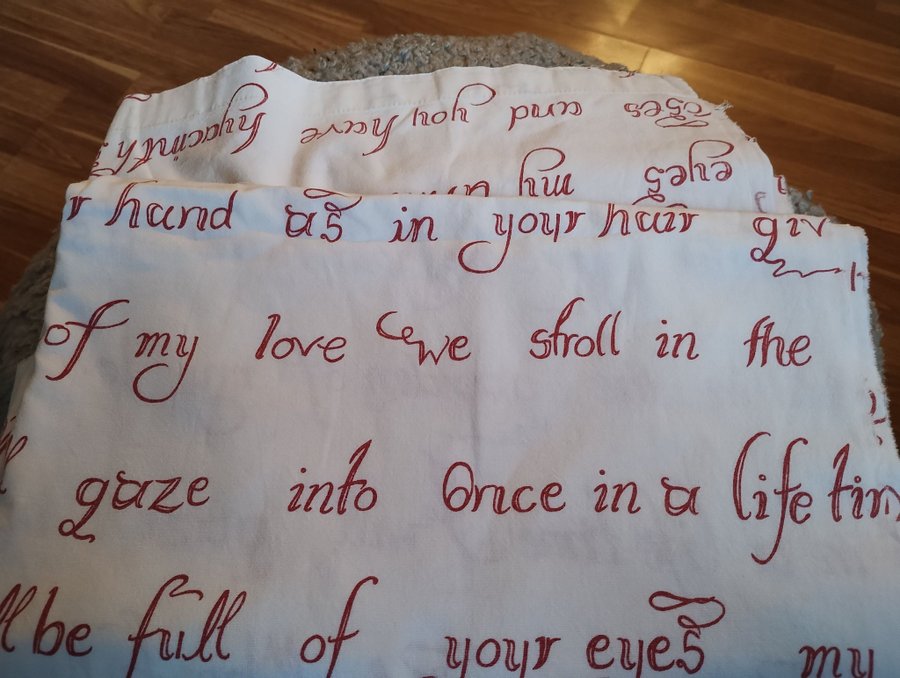 eyes my
and you have hyacinth
hand as in your hair
of my love we stroll in the
gaze into Once in a life
be full of your eyes my